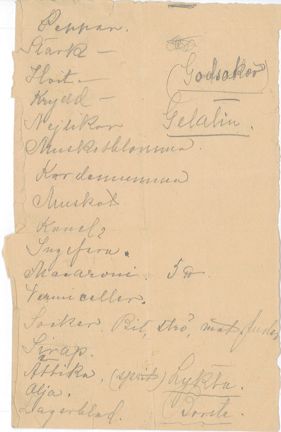 Peppar.
Stark —
Hvit —
Krydd —
Nejlikor
Muskotblomma
Kardemumma
Muskot
Kanel
Ingefära.
Macaroni. 5 ℔
Vermiceller.
Socker. Bit, strö,
Sirap.
Attika. (sprit)
Olja.
Lagerblad.
Godsaker
Gelatin.
Lykta.
Borste.